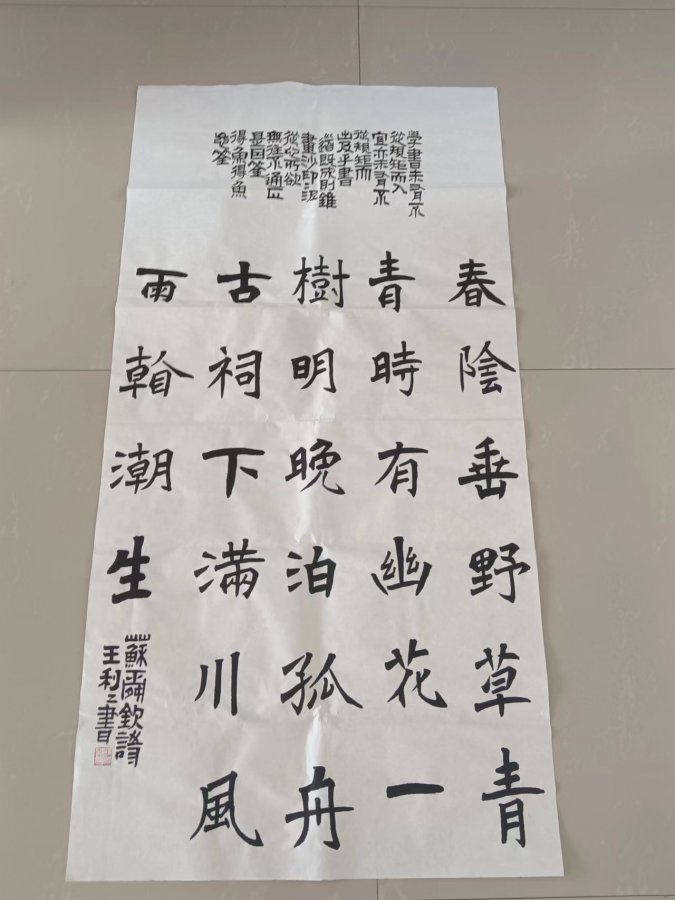 學書未有不
從規矩而入
宜亦未有不
從規矩而
出及乎書
道既成則錐
畫沙印泥
從心所欲
無往不通正
是因筌
得魚得魚
忘筌
春陰垂野草青
青時有幽花一
樹明晚泊孤舟
古祠下滿川風
雨看潮生
蘇舜欽詩
王利之書